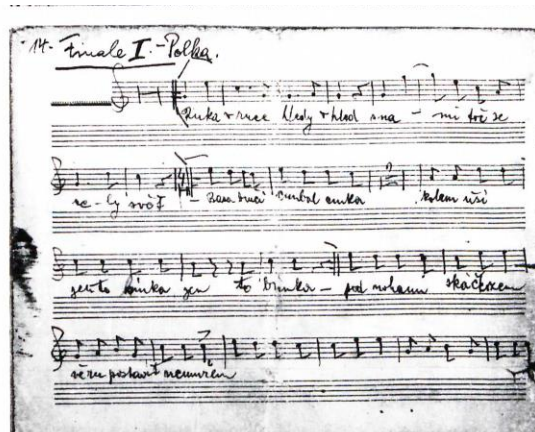 14. Finale I. - Polka.
Ruka v ruce hledy v hled s na - mi točí se
ce - lý svět - basa bručí cimbal cinká kolem uší
jen to binká jen to brinká - pod nohama skáče zem
věru postavit nemůžem